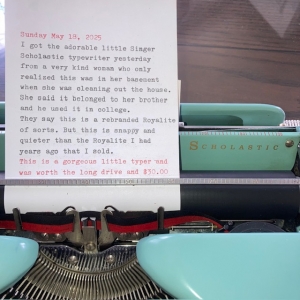 Sunday May 18, 2025
I got the adorable little Singer
Scholastic typewriter yesterday
from a very kind woman who only
realized this was in her basement
when she was cleaning out the house.
She said it belonged to her brother
and he used it in college.
They say this is a rebranded Royalite
of sorts. But this is snappy and
quieter than the Royalite I had
years ago that I sold.
This is a gorgeous little typer and
was worth the long drive and $30.00
SCHOLASTIC